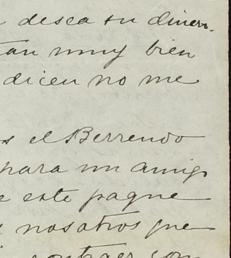 desea su dinero.
tan muy bien
dicen no me
s el Berrendo
para un amigo
e este pague
nosotros que